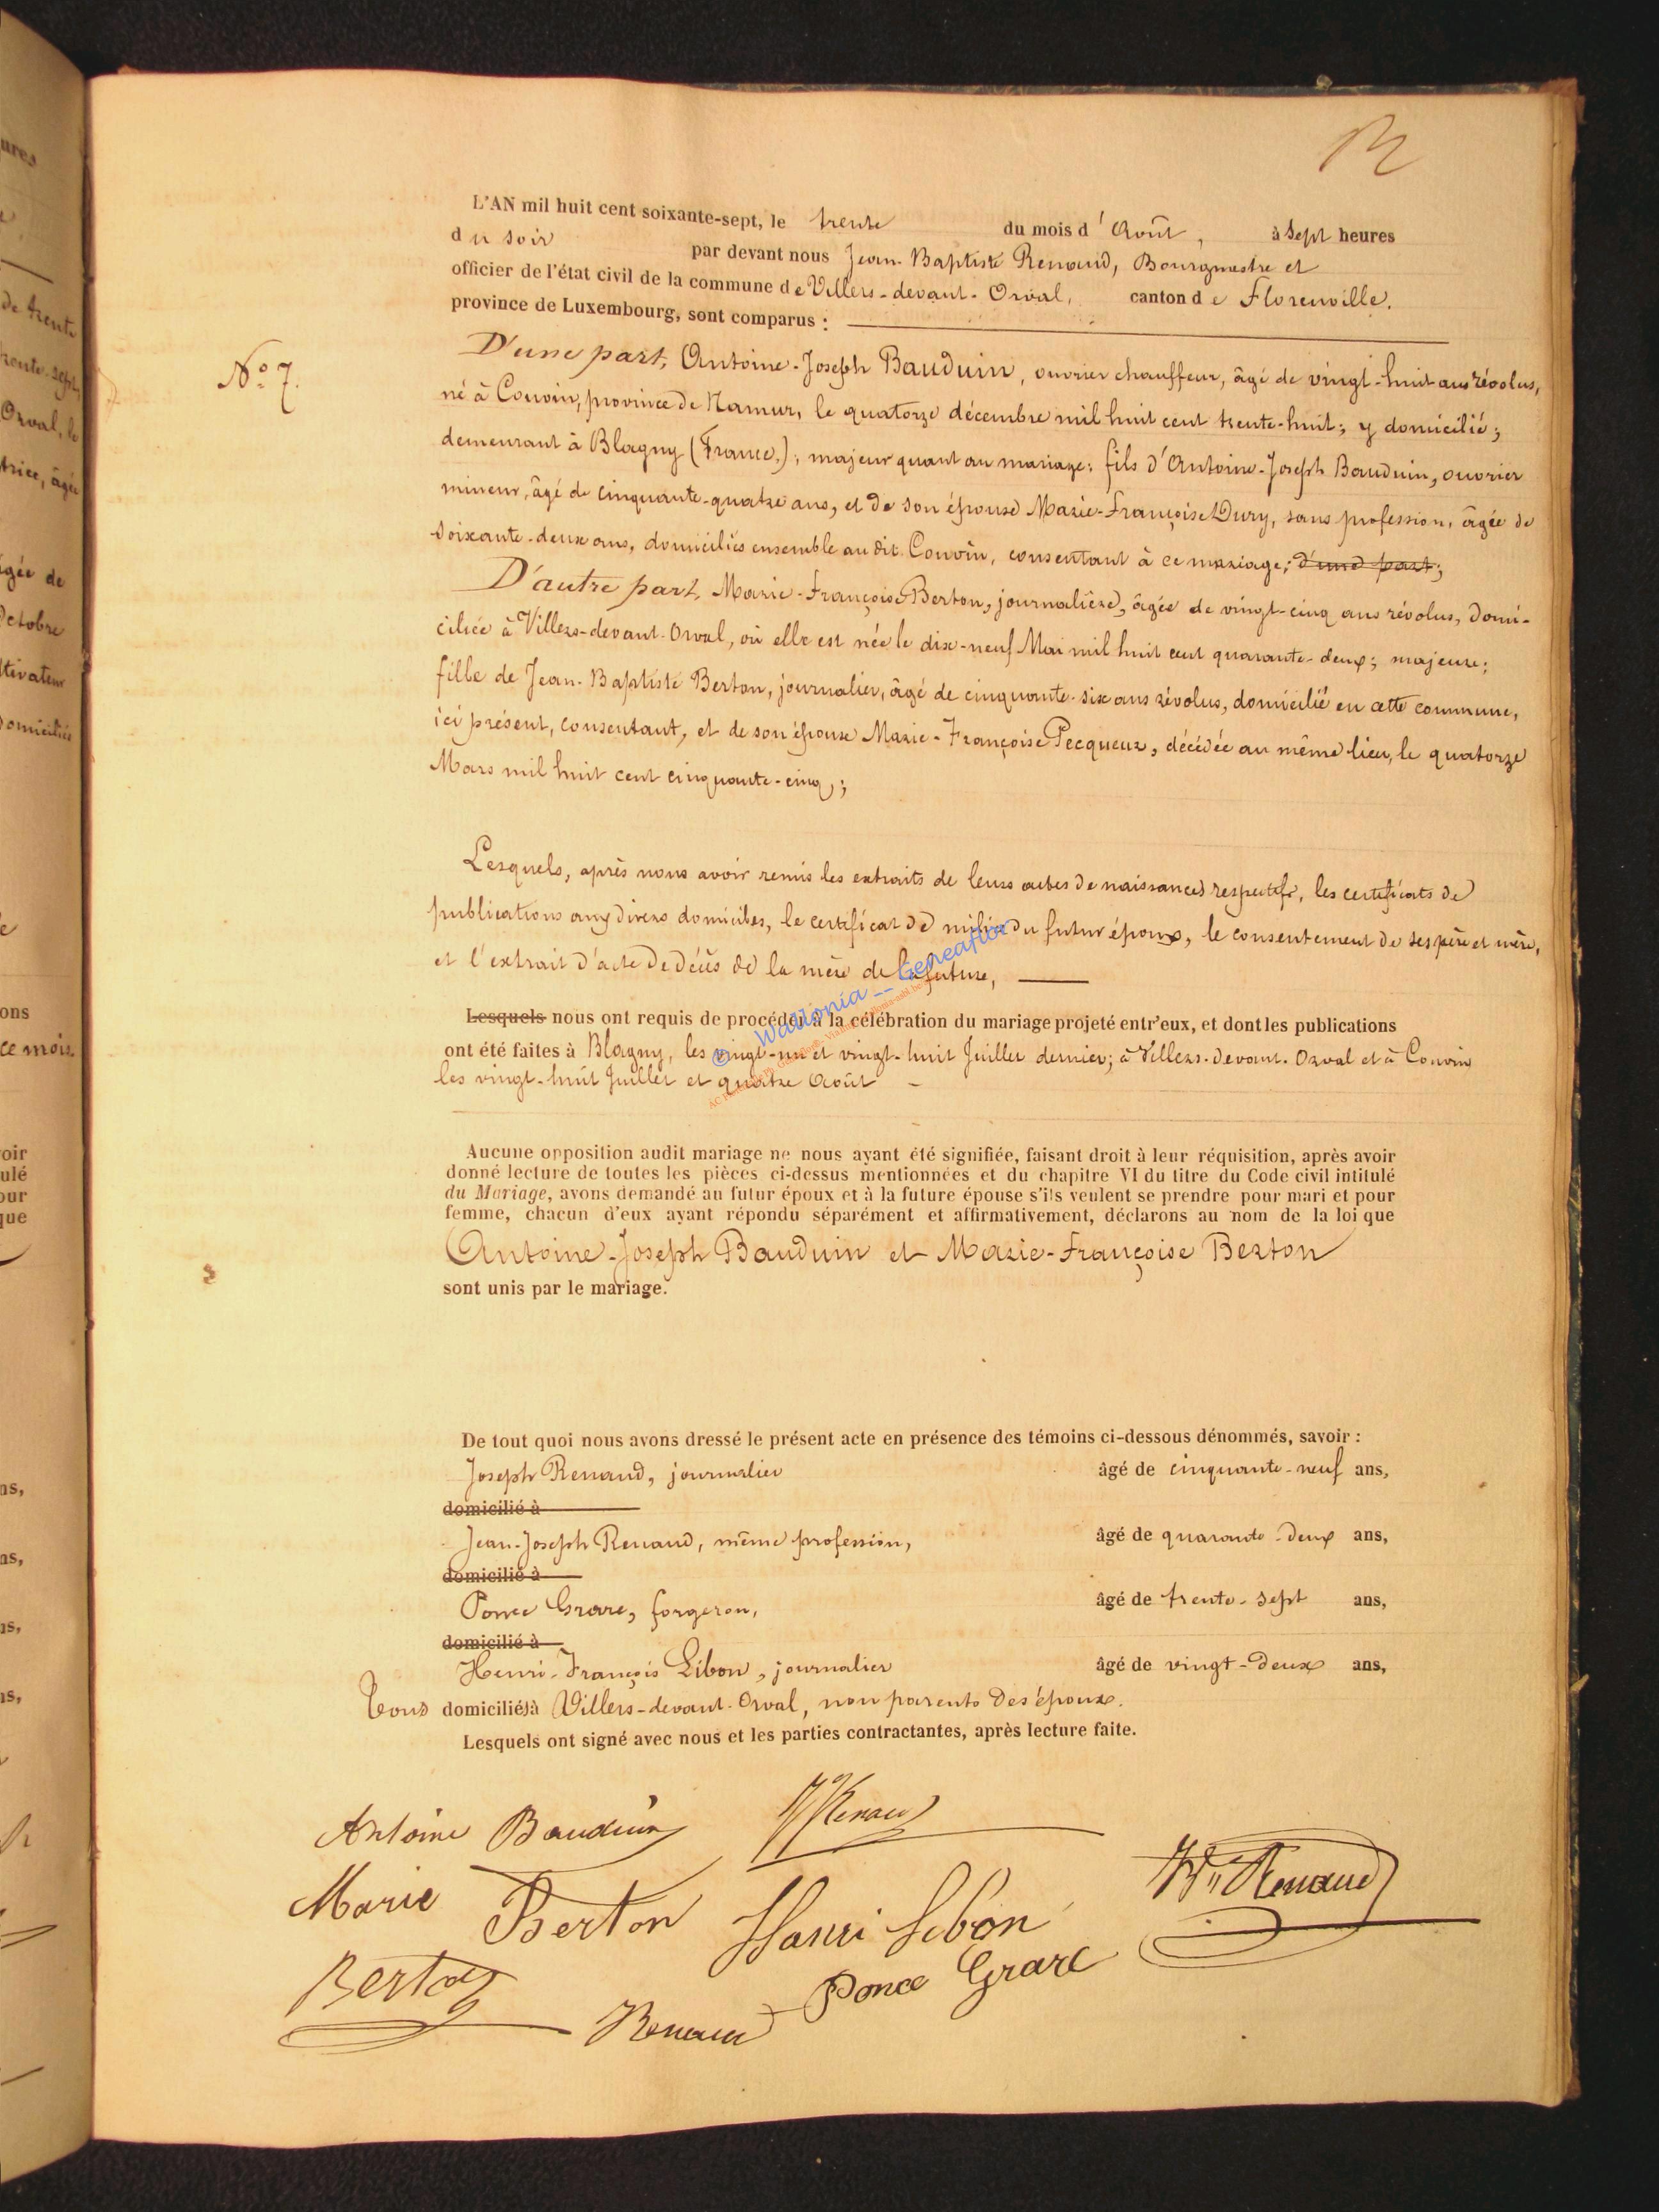 L'AN mil huit cent soixante-sept, le trente du mois d'Août, à Sept heures
du soir par devant nous Jean-Baptiste Renaud, Bourgmestre et
officier de l'état civil de la commune de Villers-devant-Orval, canton de Florenville.
province de Luxembourg, sont comparus :
N° 7.
D'une part, Antoine-Joseph Bauduin, ouvrier chauffeur, âgé de vingt-huit ans révolus,
né à Couvin, province de Namur, le quatorze décembre mil huit cent trente-huit; y domicilié;
demeurant à Blagny (France.); majeur quant au mariage; fils d'Antoine-Joseph Bauduin, ouvrier
mineur, âgé de cinquante-quatre ans, et de son épouse Marie-Françoise Dury, sans profession, âgée de
soixante-deux ans, domiciliés ensemble au dit Couvin, consentant à ce mariage; d'une part;
D'autre part, Marie-Françoise Berton, journalière, âgée de vingt-cinq ans révolus, domi-
ciliée à Villers-devant-Orval, où elle est née le dix-neuf Mai mil huit cent quarante-deux; majeure;
fille de Jean-Baptiste Berton, journalier, âgé de cinquante-six ans révolus, domicilié en cette commune,
ici présent, consentant, et de son épouse Marie-Françoise Pecqueur, décédée au même lieu, le quatorze
Mars mil huit cent cinquante-cinq,;
Lesquels, après nous avoir remis les extraits de leurs actes de naissances respectifs, les certificats de
publications aux divers domiciles, le certificat de milice du futur époux, le consentement de ses père et mère,
et l'extrait d'acte de décès de la mère de la future,
© Wallonia -- Geneaflor
Lesquels nous ont requis de procéder à la célébration du mariage projeté entr'eux, et dont les publications
ont été faites à Blagny, les vingt-un et vingt-huit Juillet dernier; à Villers-devant-Orval et à Couvin
les vingt-huit Juillet et quatre Août -
Aucune opposition audit mariage ne nous ayant été signifiée, faisant droit à leur réquisition, après avoir
donné lecture de toutes les pièces ci-dessus mentionnées et du chapitre VI du titre du Code civil intitulé
du Mariage, avons demandé au futur époux et à la future épouse s'ils veulent se prendre pour mari et pour
femme, chacun d'eux ayant répondu séparément et affirmativement, déclarons au nom de la loi que
Antoine-Joseph Bauduin et Marie-Françoise Berton
sont unis par le mariage.
De tout quoi nous avons dressé le présent acte en présence des témoins ci-dessous dénommés, savoir :
Joseph Renaud, journalier âgé de cinquante-neuf ans,
domicilié à
Jean-Joseph Renaud, même profession, âgé de quarante-deux ans,
domicilié à
Ponce Grare, forgeron, âgé de trente-sept ans,
domicilié à
Henri-François Libon, journalier âgé de vingt-deux ans,
Tous domiciliés à Villers-devant-Orval, non parents des époux.
Lesquels ont signé avec nous et les parties contractantes, après lecture faite.
Antoine Bauduin JJ Renaud
Marie Berton Hanri Lebon Renaud
Berton Renaud Ponce Grare